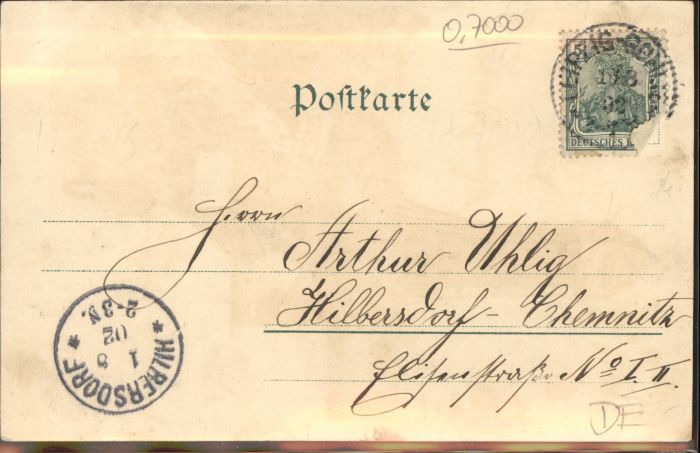 0,7000
LEIPZIG-GOHLIS
02
DEUTSCHES
Postkarte
Herrn
Arthur Uhlig
Hilbersdorf-Chemnitz
Elisenstraße No I. II.
* HILBERSDORF *
1 8
02
2-3N.
DE